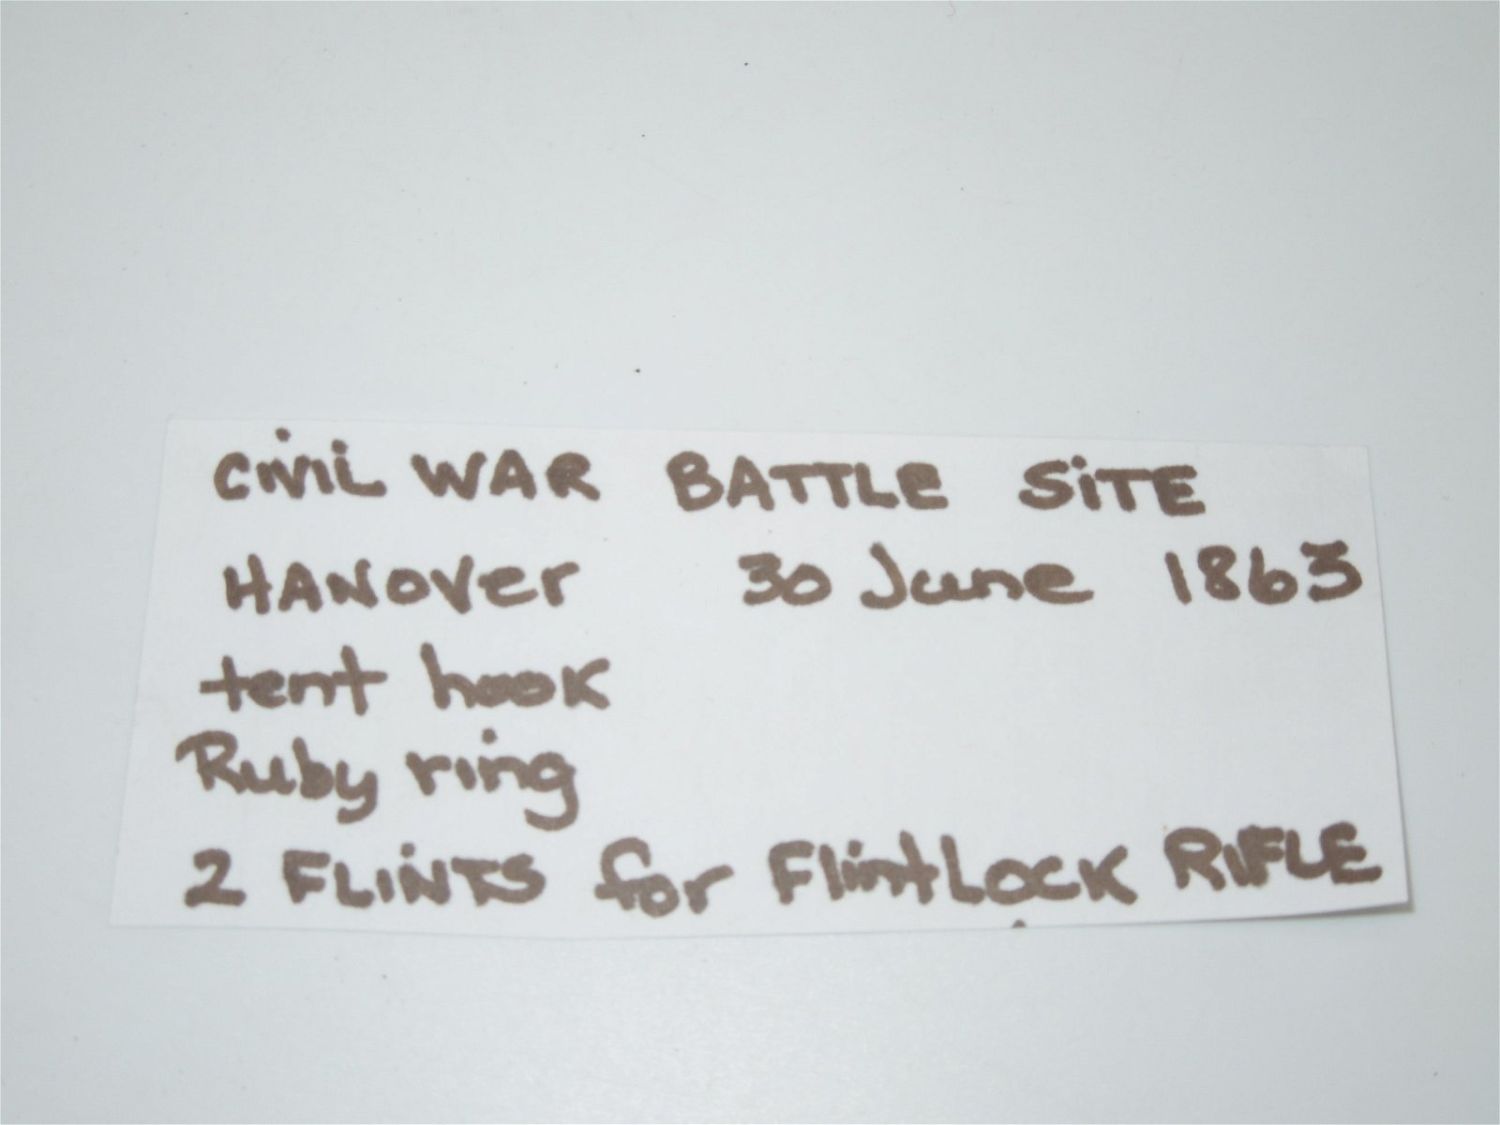 CiViL WAR BATTLe SiTE
HANOVer 30 June 1863
tent hook
Ruby ring
2 FLiNTS for FlintLOCK RIFLE